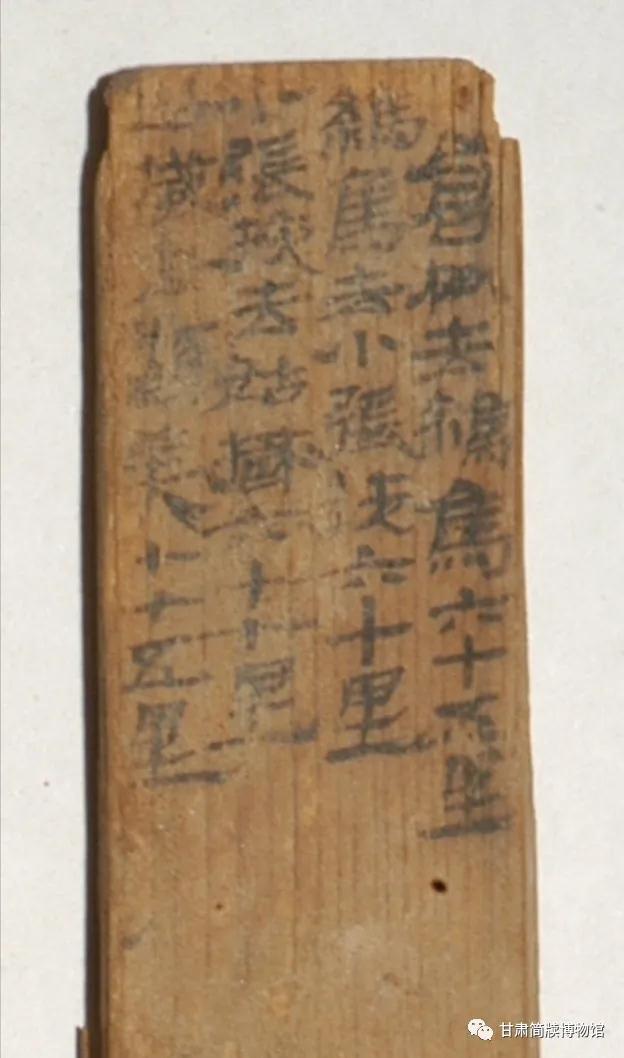 倉松去鸇鳥六十五里
鸇鳥去小張掖六十里
小張掖去姑臧六十七里
姑臧去顯美七十五里
甘肃简牍博物馆